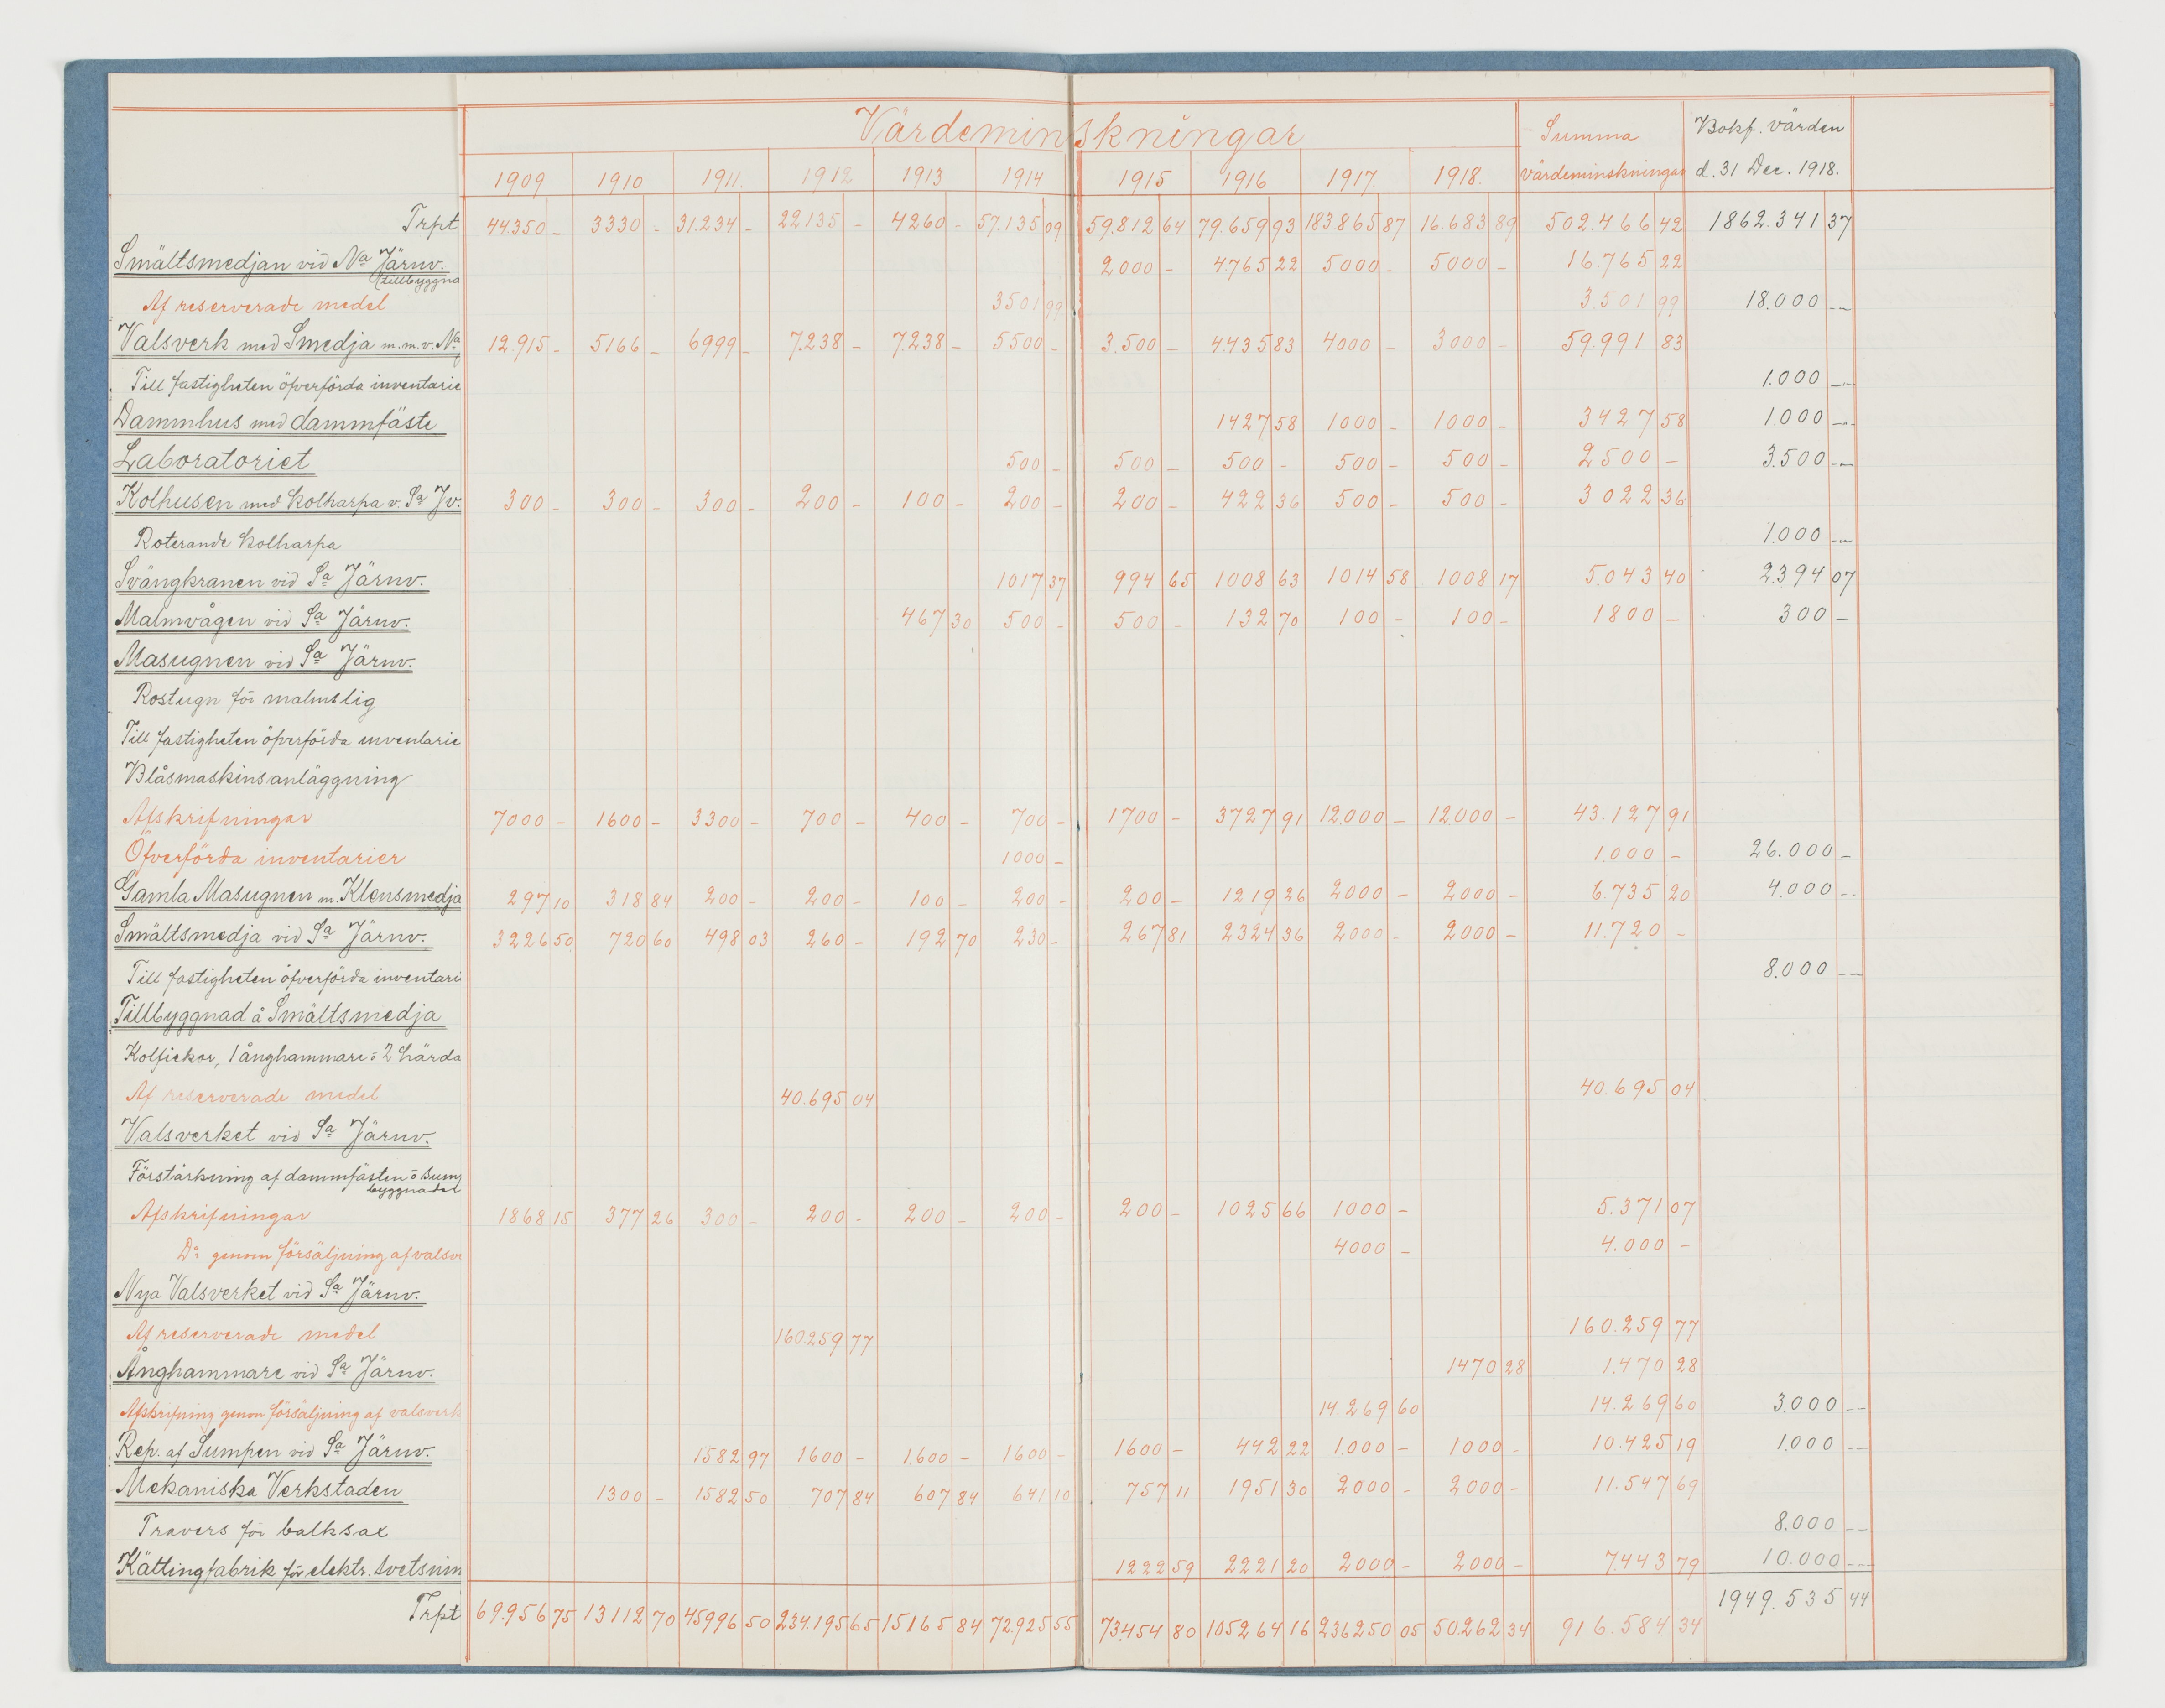 Värdeminskningar Summa värdeminskningar Bokf. värden d. 31 Dec. 1918.
1909 1910 1911. 1912 1913 1914 1915 1916 1917. 1918.
Trpt 44.350 - 3330 - 31.234 - 22135 - 4260 - 57.135 09 59.812 64 79.659 93 183.865 87 16.683 89 502.466 42 1862.341 37
Smältsmedjan vid Na Järnv. 2000 - 4.765 22 5000 - 5000 - 16.765 22
(tillbyggna
Af reserverade medel 3501 99 3.501 99 18.000 -
Valsverk med Smedja m.m.v. Na 12.915 - 5166 - 6999 - 7.238 - 7.238 - 5500 - 3.500 - 4.435 83 4000 - 3000 - 59.991 83
Till fastigheten öfverförda inventarie 1.000 -
Dammhus med dammfäste 1427 58 1000 - 1000 - 3427 58 1.000 -
Laboratoriet 500 - 500 - 500 - 500 - 500 - 2500 - 3.500 -
Kolhusen med kolharpa v. Sa Jv. 300 - 300 - 300 - 200 - 100 - 200 - 200 - 422 36 500 - 500 - 3022 36
Roterande kolharpa 1.000 -
Svängkranen vid Sa Järnv. 1017 37 994 65 1008 63 1014 58 1008 17 5.043 40 2394 07
Malmvågen vid Sa Järnv. 467 30 500 - 500 - 132 70 100 - 100 - 1800 - 300 -
Masugnen vid Sa Järnv.
Rostugn för malmslig
Till fastigheten öfverförda inventarie
Blåsmaskinsanläggning
Afskrifningar 7000 - 1600 - 3300 - 700 - 400 - 700 - 1700 - 3727 91 12.000 - 12.000 - 43.127 91
Öfverförda inventarier 1000 - 1.000 - 26.000 -
Gamla Masugnen m. Klensmedja 297 10 318 84 200 - 200 - 100 - 200 - 200 - 1219 26 2000 - 2000 - 6.735 20 4.000 -
Smältsmedja vid Sa Järnv. 3226 50 720 60 498 03 260 - 192 70 230 - 267 81 2324 36 2000 - 2000 - 11.720 -
Till fastigheten öfverförda inventari 8.000 -
Tillbyggnad å Smältsmedja
Kolfickor, 1 ånghammare o 2 härda
Af reserverade medel 40.695 04 40.695 04
Valsverket vid Sa Järnv.
Förstärkning af dammfästen o sump
byggnader
Afskrifningar 1868 15 377 26 300 - 200 - 200 - 200 - 200 - 1025 66 1000 - 5.371 07
Do genom försäljning af valsv 4000 - 4.000 -
Nya Valsverket vid Sa Järnv.
Af reserverade medel 160.259 77 160.259 77
Ånghammare vid Sa Järnv. 1470 28 1.470 28
Afskrifning genom försäljning af valsverk 14.269 60 14.269 60 3.000 -
Rep. af Sumpen vid Sa Järnv. 1582 97 1600 - 1.600 - 1600 - 1600 - 442 22 1.000 - 1000 - 10.425 19 1.000 -
Mekaniska Verkstaden 1300 - 1582 50 707 84 607 84 641 10 757 11 1951 30 2000 - 2000 - 11.547 69
Travers för balksax 8.000 -
Kättingfabrik för elektr. svetsnin 1222 59 2221 20 2000 - 2000 - 7.443 79 10.000 -
Trpt 69.956 75 13112 70 45996 50 234.195 65 15165 84 72.925 55 73.454 80 105264 16 236250 05 50.262 34 916.584 34 1949.535 44